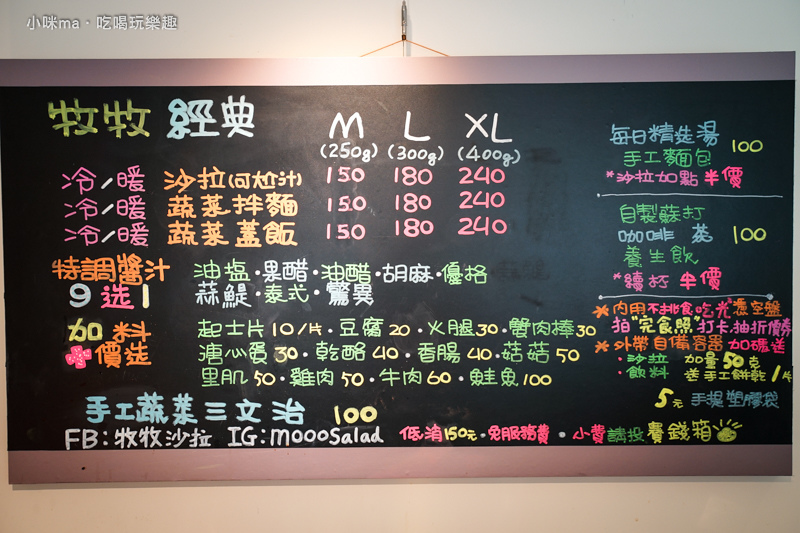 小咪ma·吃喝玩樂趣
牧牧 經典
M L XL
(250g) (300g) (400g)
冷/暖 沙拉(可加汁) 150 180 240
冷/暖 蔬菜拌麵 150 180 240
冷/暖 蔬菜蓋飯 150 180 240
特調醬汁 油塩·果醋·油醋·胡麻·優格
9选1 蒜鯷·泰式·驚異
加料 起士片10/片·豆腐20·火腿30·蟹肉捧30
價选 溏心蛋30·乾酪40·香腸40·菇菇50
里肌50·雞肉50·牛肉60·鮭魚100
手工蔬菜三文治 100
FB:牧牧沙拉 IG:moooSalad
低消150元·免服務費·小費請投賽錢箱
每日精选湯 100
手工麵包
*沙拉加點 半價
自製蘇打
咖啡 茶 100
養生飲
*續杯 半價
*內用不挑食吃光盤
拍"完食照"打卡,抽折價券
*外帶自備容器 加碼送
:沙拉 加量50克
:飲料 送手工餅乾1片
5元 手提塑膠袋